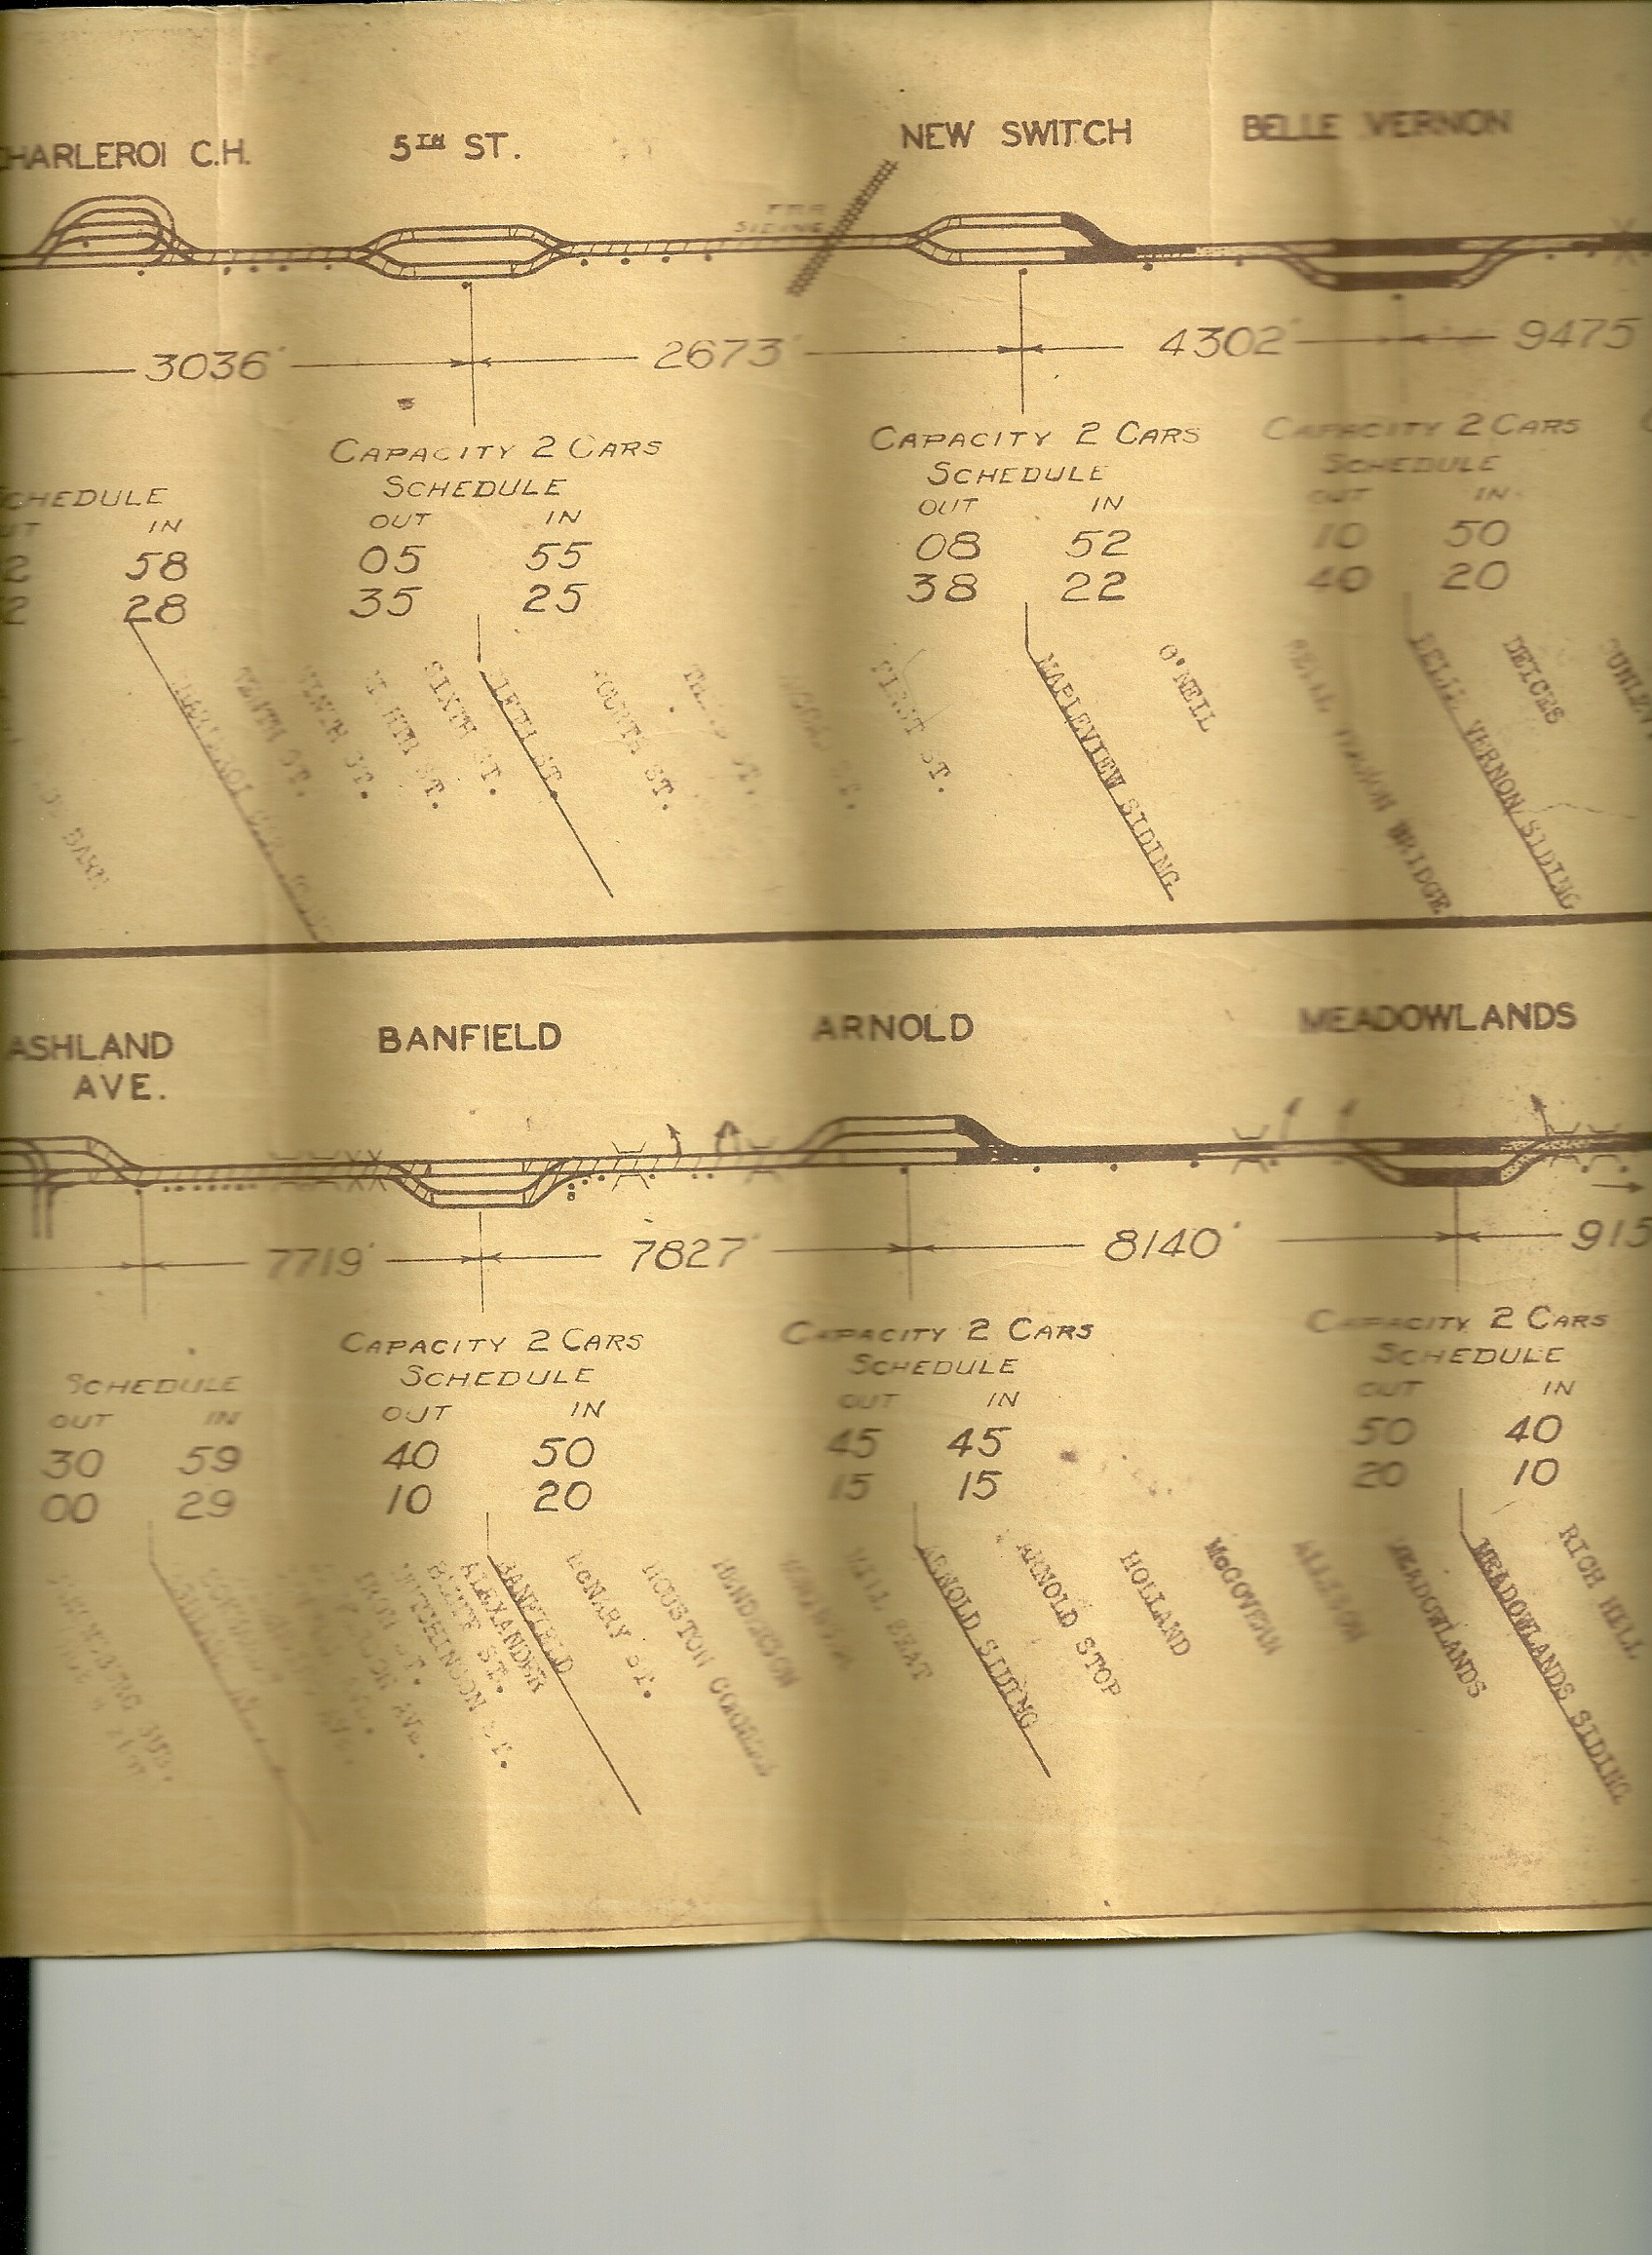 CHARLEROI C.H.
5TH ST.
NEW SWITCH
BELLE VERNON
SIDING
3036'
2673'
4302'
9475'
SCHEDULE
IN
2 58
2 28
CAPACITY 2 CARS
SCHEDULE
OUT IN
05 55
35 25
CAPACITY 2 CARS
SCHEDULE
OUT IN
08 52
38 22
CAPACITY 2 CARS
SCHEDULE
OUT IN
10 50
40 20
BARN
TENTH ST.
ST.
ST.
SIXTH ST.
FIFTH ST.
FOURTH ST.
ST.
FIRST ST.
MAPLEVIEW SIDING
O'NEIL
BRIDGE
BELLE VERNON SIDING
DEICES
ASHLAND
AVE.
BANFIELD
ARNOLD
MEADOWLANDS
7719'
7827'
8140'
915
SCHEDULE
OUT IN
30 59
00 29
CAPACITY 2 CARS
SCHEDULE
OUT IN
40 50
10 20
CAPACITY 2 CARS
SCHEDULE
OUT IN
45 45
15 15
CAPACITY 2 CARS
SCHEDULE
OUT IN
50 40
20 10
AVE.
HUTCHINSON ST.
BLUFF ST.
ALEXANDER
BANFIELD
McNARY ST.
HOUSTON
HENDERSON
ARNOLD SIDING
ARNOLD STOP
HOLLAND
McGOVERN
ALLISON
MEADOWLANDS
MEADOWLANDS SIDING
RICH HILL